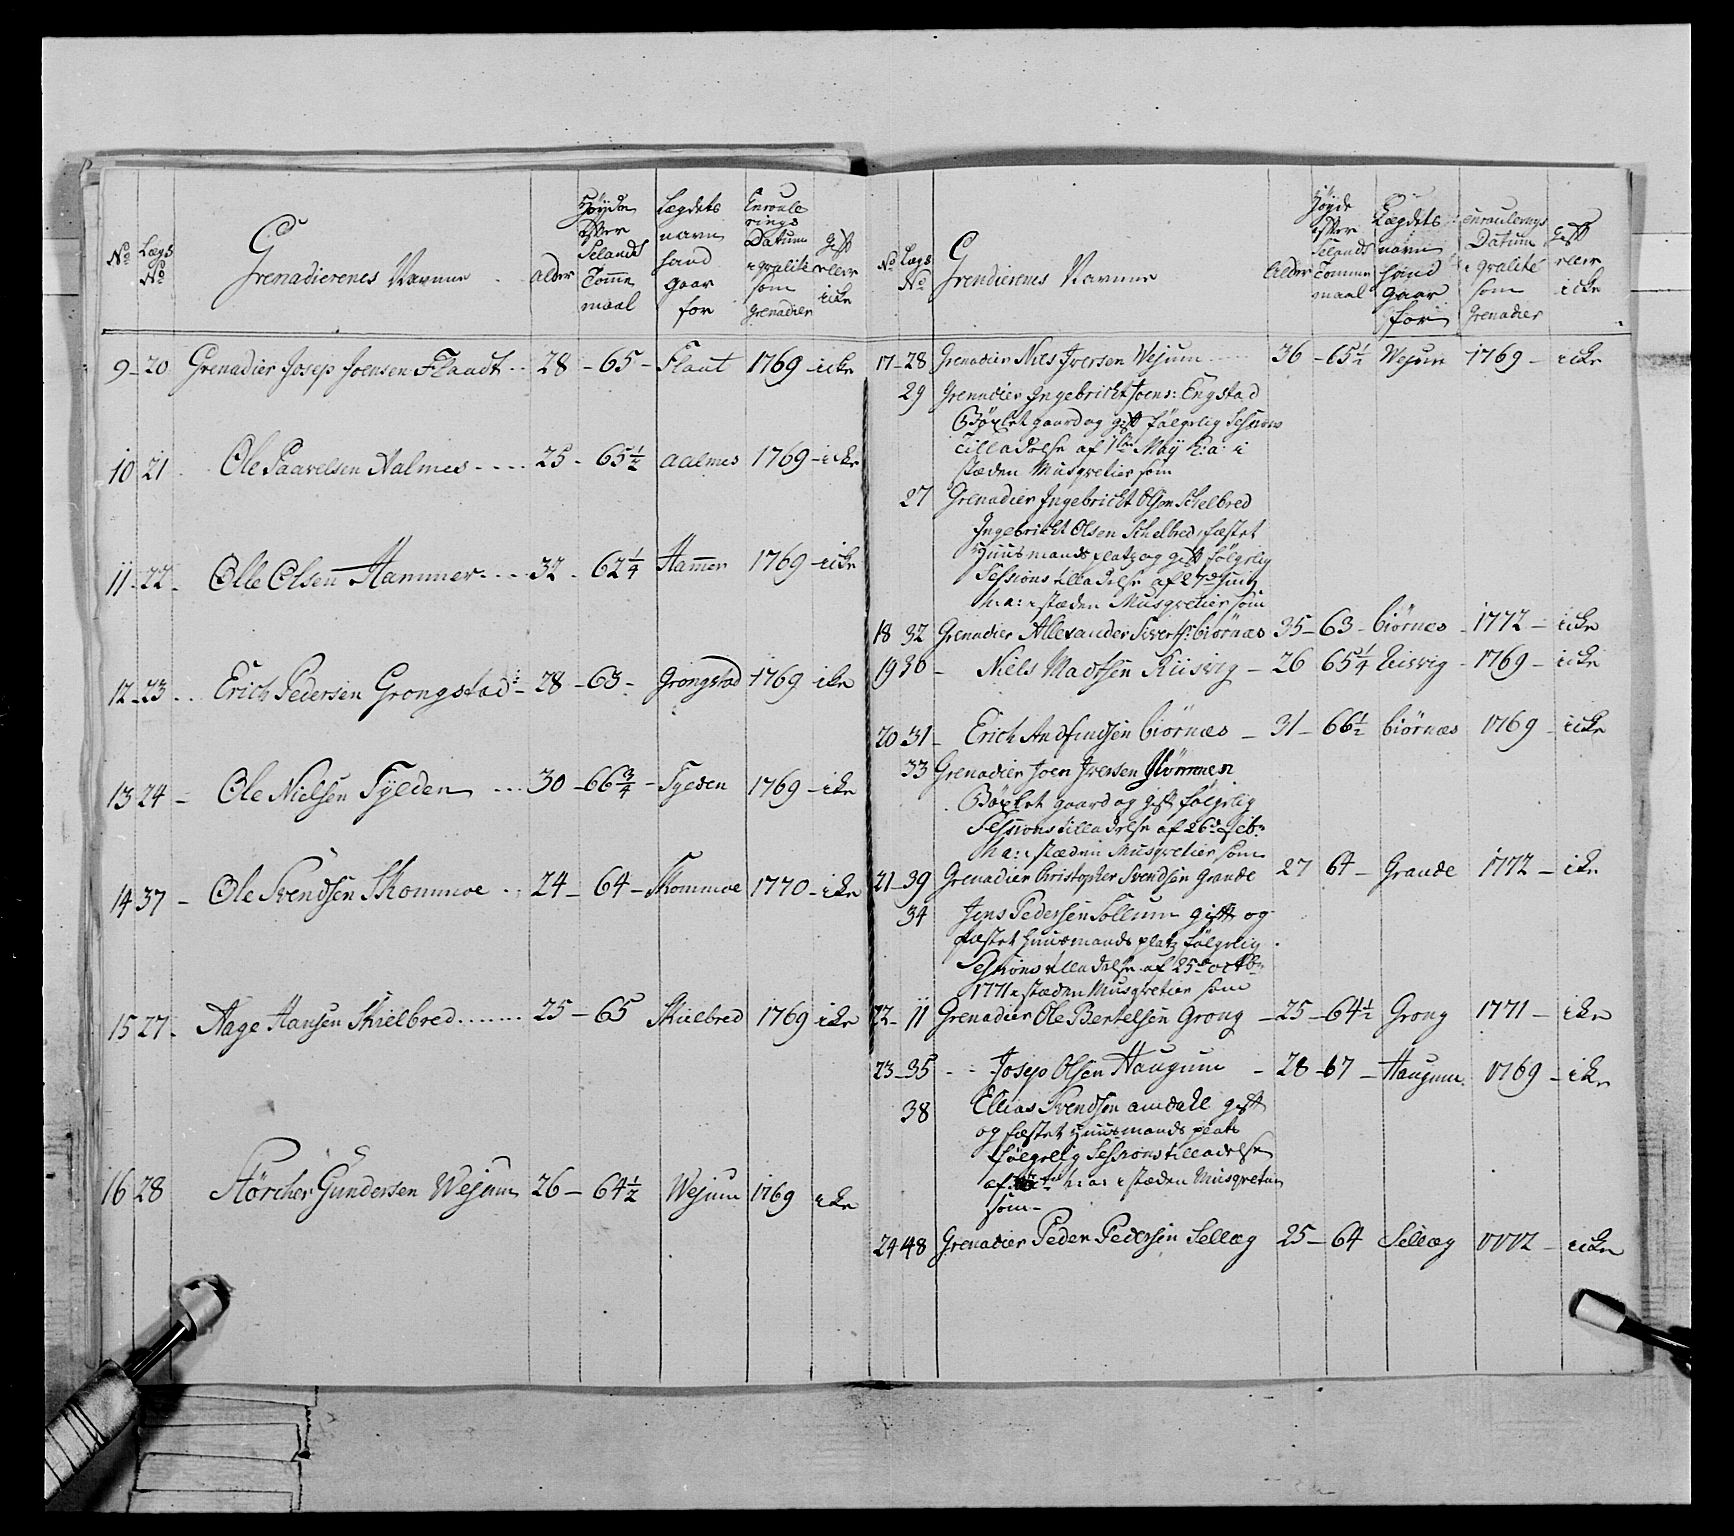 No
Lægs No
Grenadierenes Navne
Alder
Höyden efter Selands Tomme maal
Lægdets navn hand gaar for
Enroulerings Datum i qvalité som Grenadier
Gift eller icke
9 - 20 Grenadier Josep Joensen Flaudt - 28 - 65 - Flaut 1769 - icke
10 21 Ole Paavelsen Aalmes - 25 - 65 1/2 aalmes 1769 - icke
11 - 22 - Olle Olsen Hammer - 32 - 62 1/4 Hammer 1769 - icke
12 - 23 Erich Pedersen Grongstad - 28 - 63 - Grongstad 1769 - icke
13 24 - Ole Nielsen Tylden - 30 - 66 3/4 - Tylden 1769 - icke
14 37 - Ole Svendsen Skommoe - 24 - 64 - Skommoe 1770 - icke
15 27 - Aage Hansen Skielbred - 25 - 65 Skielbred 1769 icke
16 28 Störcher Gundersen Wejum 26 - 64 1/2 Wejum 1769 icke
No
Lægs No
Grendierenes Navne
Alder
Höyde efter Selands Tomme maal
Lægdets navn hand gaar for
enroulerings Datum i qvalité som Grenadier
Gift eller icke
17 - 28 Grenadier Niels Iversen Wejum 36 - 65 1/2 Wejum 1769 - icke
29 Grenadier Ingebricht Joens: Engstad
Böxlet gaard og gift fölgelig Sessions
Tilladelse af 1ste Maÿ h: a: i
stæden Musqvetier som
27 Grenadier Ingebricht Olsen Skelbred
Ingebricht Olsen Schelbred, fæstet
Huusmands platz og gift fölgelig
Sessions tilladelse af 27de Junÿ
h: a: i stæden Musqvetier som
18 32 Grenadier Allexander Sivertsen biörnæs 35 - 63 - biörnes - 1772 - icke
19 36 - Niels Madtsen Riisvig - 26 65 1/4 Riisvig - 1769 - icke
20 31 - Erich Andfindsen biörnæs - 31 - 66 1/2 biörnæs 1769 - icke
33 Grenadier Joen Iversen
Böxlet gaard og gift fölgelig
Sessions tilladelse af 26de feb:
h: a: i stæden Musqvetier som
21 - 39 Grenadier Christopher Svendsen Grande 27 64 - Grande 1772 - icke
34 Jens Pedersen Sollum gift og
fæstet huusmands platz fölgelig
Sessions tilladelse af 25de octbr
1771 i stæden Musqvetier som
22 - 11 Grenadier Ole Bertelsen Grong - 25 - 64 1/2 Grong 1771 - icke
23 - 35 - Josep Olsen Haugum - 28 - 67 - Haugum 1769 - icke
38 Ellias Svendsen amdahl gift
og fæstet Huusmands plats
fölgelig Sessions tilladelse
af h: a: i stæden Musqvetier
som -
24 48 Grenadier Peder Pedersen Sellæg 25 - 64 Sellæg 1772 - icke